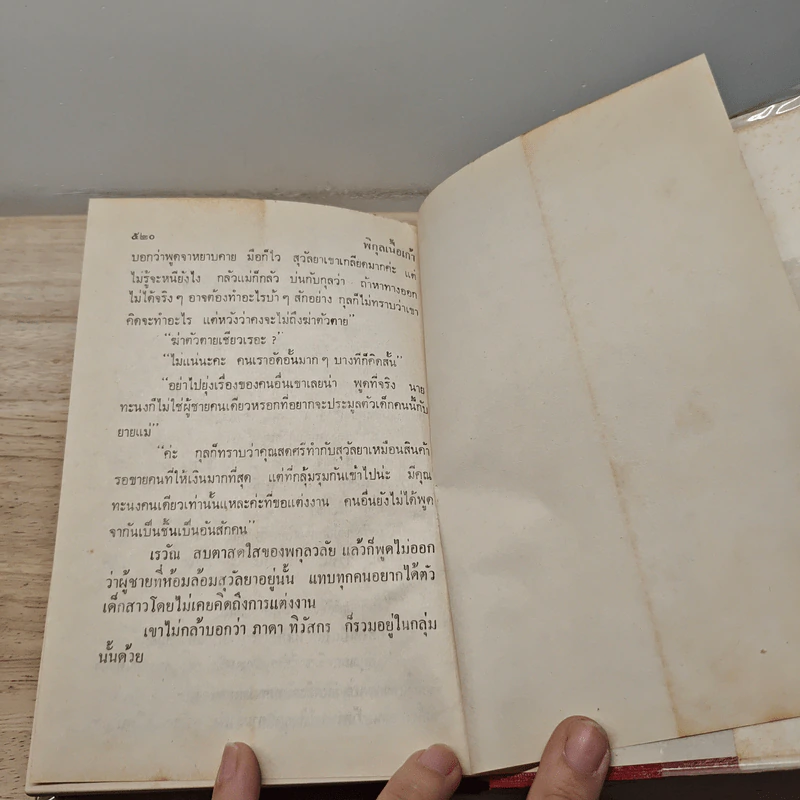 ๕๒๐
พิกุลเนื้อเก้า
บอกว่าพูดจาหยาบคาย มือก็ไว สุวัลยาเขาเกลียดมากค่ะ แต่
ไม่รู้จะหนียังไง กลัวแม่ก็กลัว บ่นกับกุลว่า ถ้าหาทางออก
ไม่ได้จริง ๆ อาจต้องทำอะไรบ้า ๆ สักอย่าง กุลก็ไม่ทราบว่าเขา
คิดจะทำอะไร แต่หวังว่าคงจะไม่ถึงฆ่าตัวตาย"
"ฆ่าตัวตายเชียวเรอะ ?"
"ไม่แน่นะคะ คนเราอัดอั้นมาก ๆ บางทีก็คิดสั้น"
"อย่าไปยุ่งเรื่องของคนอื่นเขาเลยน่า พูดที่จริง นาย
ทะนงก็ไม่ใช่ผู้ชายคนเดียวหรอกที่อยากจะประมูลตัวเด็กคนนี้กับ
ยายแม่"
"ค่ะ กุลก็ทราบว่าคุณสดศรีทำกับสุวัลยาเหมือนสินค้า
รอขายคนที่ให้เงินมากที่สุด แต่ที่กลุ้มรุมกันเข้าไปน่ะ มีคุณ
ทะนงคนเดียวเท่านั้นแหละค่ะที่ขอแต่งงาน คนอื่นยังไม่ได้พูด
จากันเป็นชิ้นเป็นอันสักคน"
เรวัณ สบตาสดใสของพกุลวลัย แล้วก็พูดไม่ออก
ว่าผู้ชายที่ห้อมล้อมสุวัลยาอยู่นั้น แทบทุกคนอยากได้ตัว
เด็กสาวโดยไม่เคยคิดถึงการแต่งงาน
เขาไม่กล้าบอกว่า ภาดา ทิวัสกร ก็รวมอยู่ในกลุ่ม
นั้นด้วย